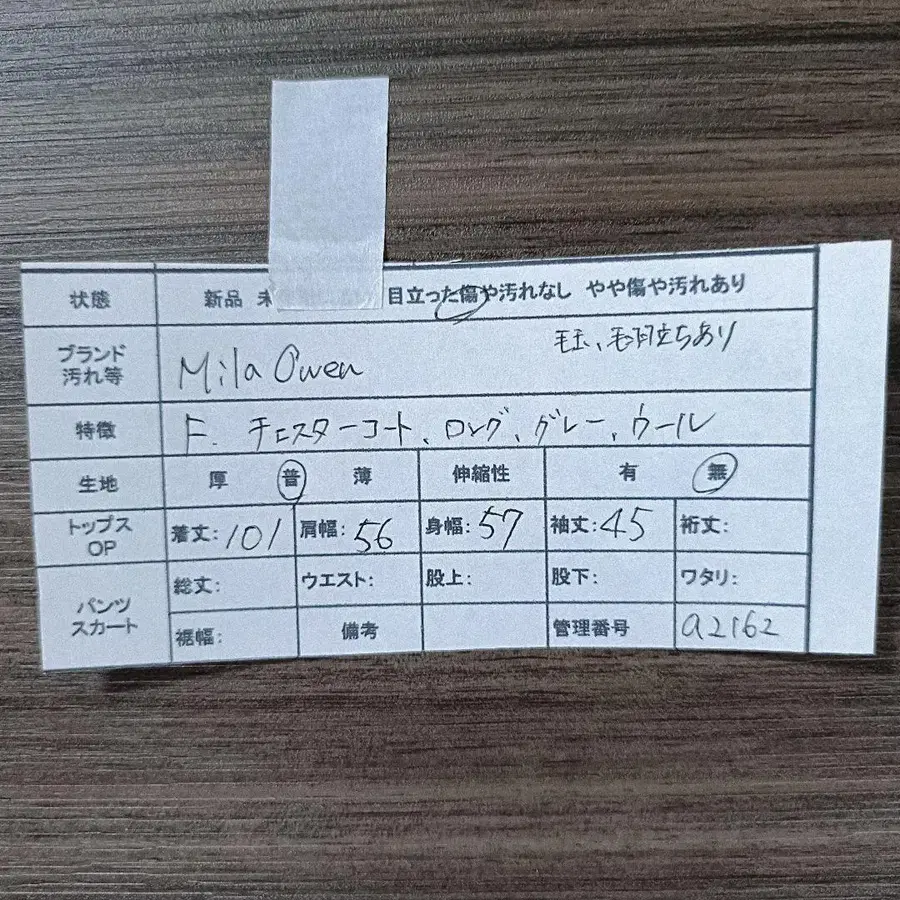 状態 新品 未 目立った傷や汚れなし やや傷や汚れあり
ブランド 汚れ等 Mila Owen 毛玉、毛羽立ちあり
特徴 F. チェスターコート、ロング、グレー、ウール
生地 厚 普 薄 伸縮性 有 無
トップス OP 着丈:101 肩幅:56 身幅:57 袖丈:45 裄丈:
パンツ スカート 総丈: ウエスト: 股上: 股下: ワタリ:
裾幅: 備考 管理番号 a2162